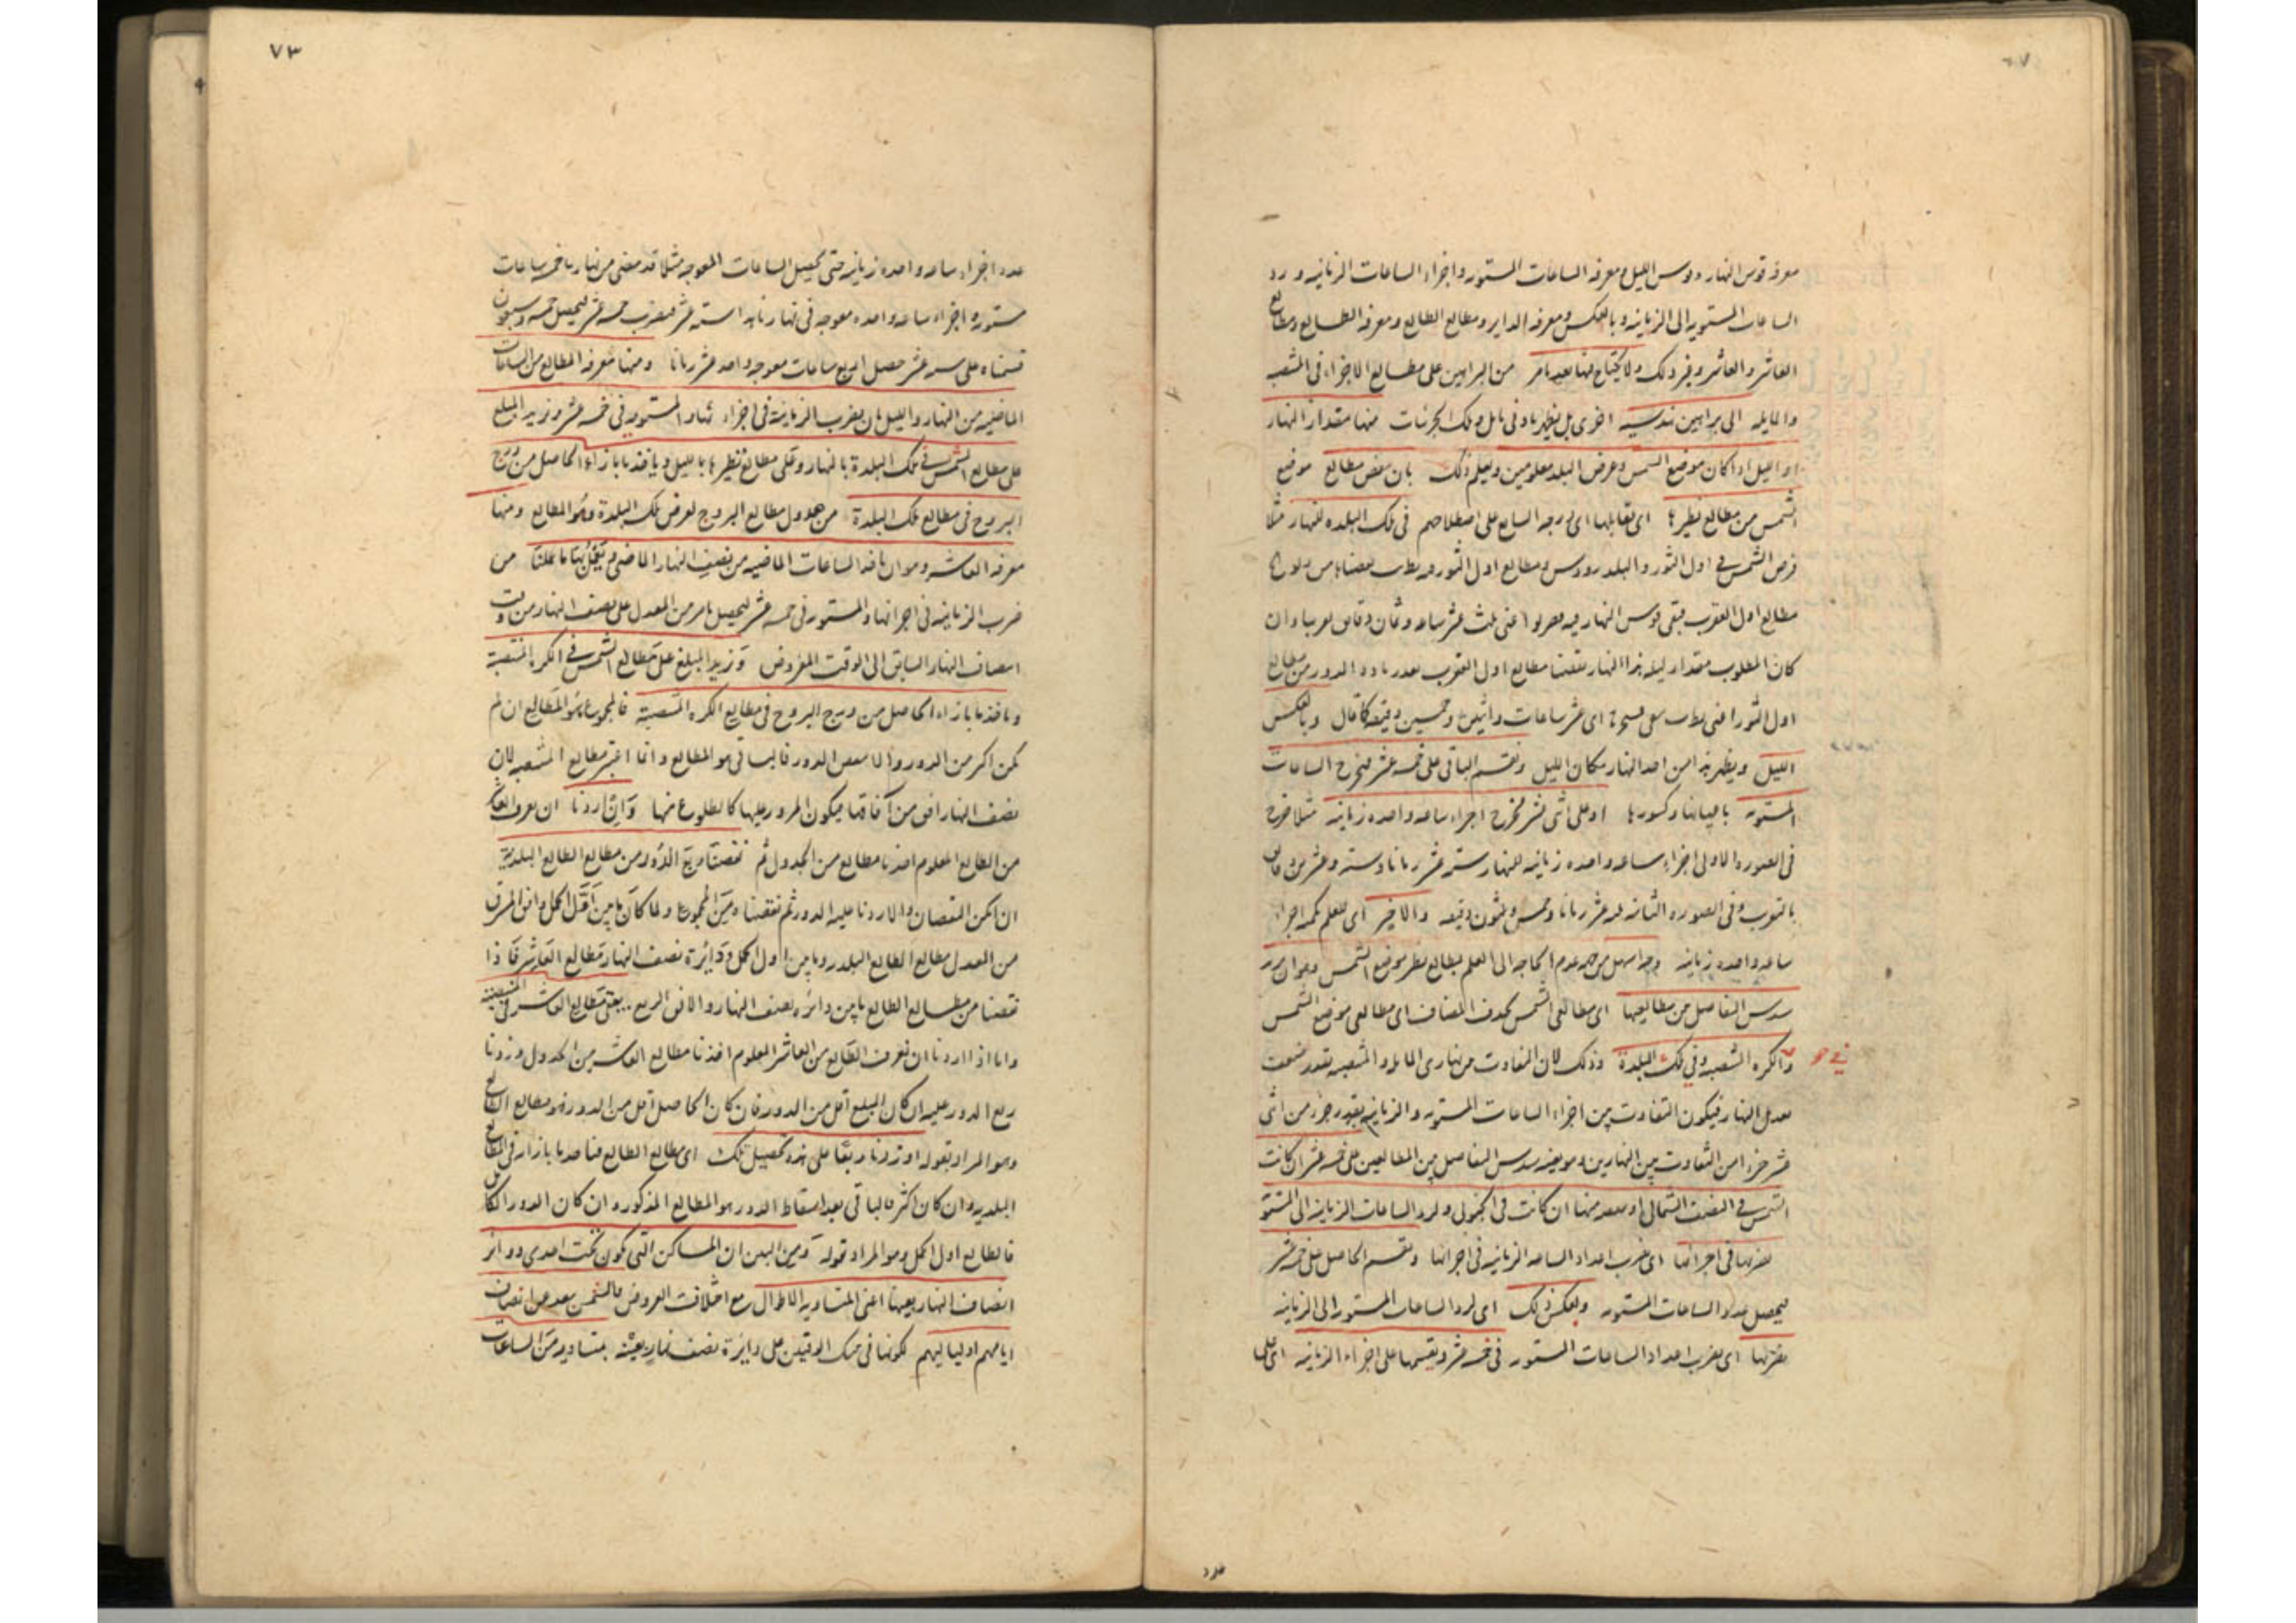 معرفة قوس النهار وقوس الليل ومعرفة الساعات المستوية واجزاء الساعات الزمانية ورد
الساعات المستوية الى الزمانية وبالعكس ومعرفة الداير ومطالع الطالع ومعرفة الطالع ومطالع
العاشر والعاشر وغير ذلك ولا يحتاج فيها بعد ما مر من البراهين على مطالع الاجزاء في المنتصبة
والمايلة الى براهين هندسية اخرى بل يظهر بادنى تامل وتلك الجزئيات منها مقدار النهار
او الليل اذا كان موضع الشمس وعرض البلد معلومين ويعلم ذلك بان ننقص مطالع موضع
الشمس من مطالع نظيرها اى مقابلها اى درجة السابع على اصطلاحهم في تلك البلدة للنهار مثلا
فرض الشمس في اول الثور والبلد ومطالع اول الثور
مطالع اول العقرب فبقى قوس النهار اعنى ثلث عشر ساعة وثمان دقايق تقريبا وان
كان المطلوب مقدار ليلة هذا النهار نقصنا مطالع اول العقرب بعد زيادة الدور من مطالع
اول الثور اعنى اى عشر ساعات واثنين وخمسين دقيقة كما قال وبالعكس
الليل ويظهر هذا من اخذ النهار مكان الليل ونقسم الباقى على خمسة عشر فيخرج الساعات
المستوية باجزائها وكسورها او على اثنى عشر فيخرج اجزاء ساعة واحدة زمانية مثلا خرج
في الصورة الاولى اجزاء ساعة واحدة زمانية للنهار ستة عشر زمانا وستة وعشرين دقايق
بالتقريب وفي الصورة الثانية عشر زمانا وخمس وثلثون دقيقة والاخير اى العلم بكمية اجزاء
ساعة واحدة زمانية وجه اسهل من جهة عدم الحاجة الى العلم بمطالع نظير موضع الشمس وهو ان
سدس التفاضل من مطالعيها اى مطالعى الشمس بحذف المضاف اى مطالعى موضع الشمس
في
الكرة المنتصبة وفي تلك البلدة وذلك لان التفاوت بين نهارى المايلة والمنتصبة بقدر ضعف
تعديل النهار فيكون التفاوت بين اجزاء الساعات المستوية والزمانية بقدر جزء من اثنى
عشر جزءا من التفاوت بين النهارين وهو بعينه سدس التفاضل بين المطالعين على خمسة عشر ان كانت
الشمس في النصف الشمالى او منها ان كانت في الجنوبى ولرد الساعات الزمانية الى المستوية
نضربها في اجزائها اى نضرب اعداد الساعة الزمانية في اجزائها ونقسم الحاصل على خمسة عشر
ليحصل عدد الساعات المستوية وبعكس ذلك اى لرد الساعات المستوية الى الزمانية
نضربها اى نضرب اعداد الساعات المستوية في خمسة عشر ونقسمها على اجزاء الزمانية اى على
عدد
٧٣
عدد اجزاء ساعة واحدة زمانية حتى تحصل الساعات المعوجة مثلا قد مضى من نهارنا خمس ساعات
مستوية واجزاء ساعة واحدة معوجة في نهارنا هذا ستة عشر فنضرب خمسة عشر ليحصل خمسة وسبعون
قسمناه على ستة عشر حصل اربع ساعات معوجة واحد عشر زمانا ومنها معرفة المطالع من الساعات
الماضية من النهار والليل بان نضرب الزمانية في اجزاء والمستوية في خمسة عشر ونزيد المبلغ
على مطالع الشمس في تلك البلدة بالنهار وعلى مطالع نظيرها بالليل وناخذ ما بازاء الحاصل من درج
البروج في مطالع تلك البلدة من جدول مطالع البروج لعرض تلك البلدة وهو الطالع ومنها
معرفة العاشر وهو ان ناخذ الساعات الماضية من نصف النهار الماضى ونعمل بها ما عملنا من
ضرب الزمانية في اجزائها والمستوية في خمسة عشر ليحصل ما مر من المعدل على نصف النهار من وقت
انتصاف النهار السابق الى الوقت المفروض ونزيد المبلغ على مطالع الشمس في الكرة المنتصبة
وناخذ ما بازاء الحاصل من درج البروج في مطالع الكرة المنتصبة فالمجموع هو المطالع ان لم
يكن اكثر من الدور والا ننقص الدور فالباقى هو المطالع وانما اعتبر مطالع المنتصبة لان
نصف النهار افق من آفاقها فيكون المرور عليها كالطلوع منها وان اردنا ان نعرف العاشر
من الطالع المعلوم اخذنا مطالع من الجدول ثم نقصنا ربع الدور من مطالع الطالع البلدية
ان امكن النقصان والا زدنا عليه الدور ثم نقصناه من المجموع ولما كان ما بين اول الحمل وافق المشرق
من المعدل مطالع الطالع البلدية وما بين اول الحمل ودائرة نصف النهار مطالع العاشر فاذا
نقصنا من مطالع الطالع ما بين دائرة نصف النهار والافق الربع يبقى مطالع العاشر في المنتصبة
واما اذا اردنا ان نعرف الطالع من العاشر المعلوم اخذنا مطالع العاشر من الجدول وزدنا
ربع الدور عليه ان كان المبلغ اقل من الدور فان كان الحاصل اقل من الدور فهو مطالع الطالع
وهو المراد بقوله او زدنا ربعا على هذه تحصيل تلك اى مطالع الطالع فناخذ ما بازائه في المطالع
البلدية وان كان اكثر فالباقى بعد اسقاط الدور هو المطالع المذكورة وان كان الدور الكامل
فالطالع اول الحمل وهو المراد بقوله ومن البين ان المساكن التى تكون تحت احدى دوائر
انصاف النهار بعينها اعنى المتساوية الاطوال مع اختلاف العروض فالشمس بعد عن انصاف
ايامهم او لياليهم لكونها في تلك الوقتين على دائرة نصف نهار بعينه بمتساوية من الساعات